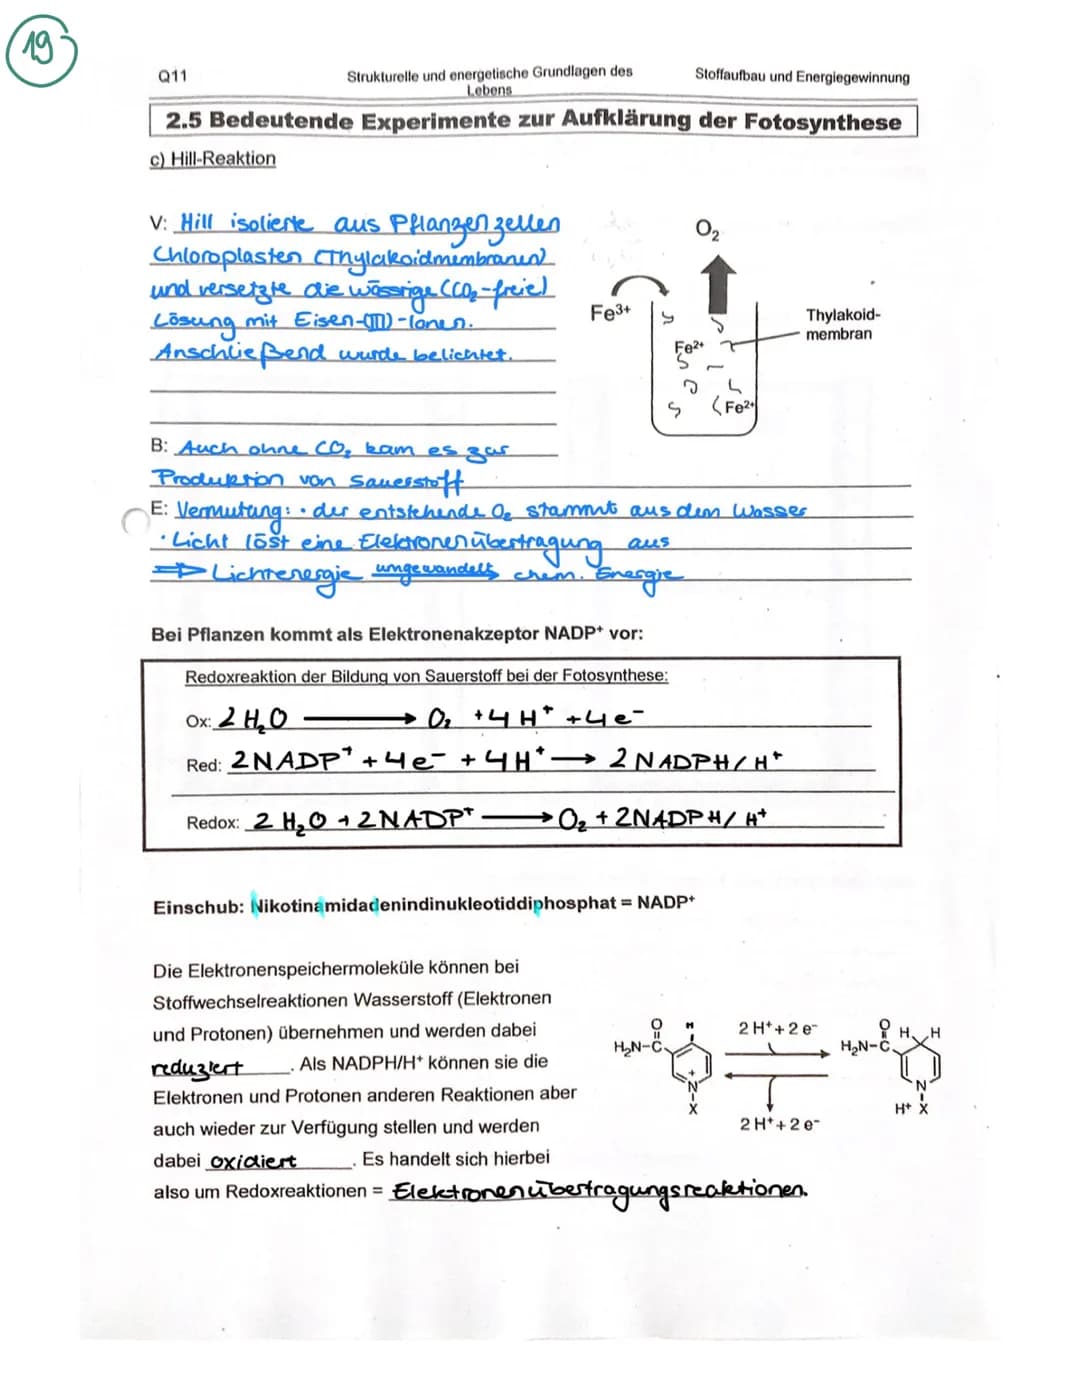 19
Q11
Strukturelle und energetische Grundlagen des
Lebens
Stoffaufbau und Energiegewinnung
2.5 Bedeutende Experimente zur Aufklärung der Fotosynthese
c) Hill-Reaktion
V: Hill isolierte aus Pflanzenzellen
Chloroplasten (Thylakoidmembranen)
und versetzte die wässrige (CO₂-freie)
Lösung mit Eisen-(III)-Ionen.
Anschließend wurde belichtet.
O₂
Fe³⁺
Fe²⁺
Fe²⁺
Thylakoid-
membran
B: Auch ohne CO₂ kam es zur
Produktion von Sauerstoff
E: Vermutung: • der entstehende O₂ stammt aus dem Wasser
• Licht löst eine Elektronenübertragung aus
⇒ Lichtenergie umgewandelt chem. Energie
Bei Pflanzen kommt als Elektronenakzeptor NADP⁺ vor:
Redoxreaktion der Bildung von Sauerstoff bei der Fotosynthese:
Ox: 2 H₂O → O₂ + 4 H⁺ + 4e⁻
Red: 2NADP⁺ + 4e⁻ + 4H⁺ → 2 NADPH/H⁺
Redox: 2 H₂O + 2NADP⁺ → O₂ + 2NADPH/H⁺
Einschub: Nikotinamidadenindinukleotiddiphosphat = NADP⁺
Die Elektronenspeichermoleküle können bei
Stoffwechselreaktionen Wasserstoff (Elektronen
und Protonen) übernehmen und werden dabei
reduziert. Als NADPH/H⁺ können sie die
Elektronen und Protonen anderen Reaktionen aber
auch wieder zur Verfügung stellen und werden
dabei oxidiert. Es handelt sich hierbei
also um Redoxreaktionen = Elektronenübertragungsreaktionen.
O H
H₂N-C
N⁺
X
2 H⁺ + 2 e⁻
2 H⁺ + 2 e⁻
O H H
H₂N-C
N
H⁺ X